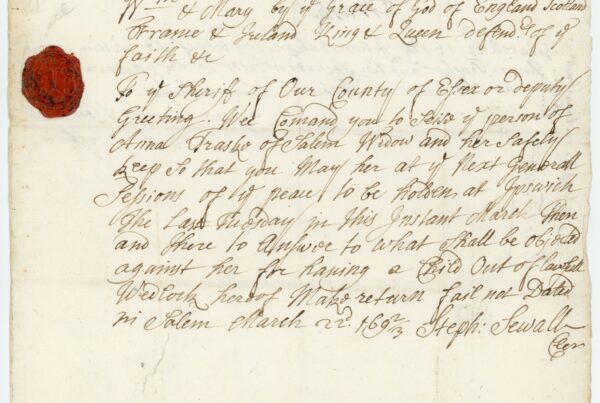 Wm & Mary by ye Grace of God of England Scotland
France & Ireland King & Queen defendrs of ye
faith &c
To ye Sheriff of Our County of Essex or deputy
Greeting. Wee Comand you to Seise ye person of
Anna Traske of Salem Widow and her Safely
keep So that you May her at ye Next Generall
Sessions of ye peace to be holden at Ipswich
The Last Tuesday in this Instant March Then
and there to Answer to what Shall be objected
against her for having a Child Out of lawfull
Wedlock hereof Make return fail not Dated
in Salem March 22d 169 2/3 Steph: Sewall
Cler